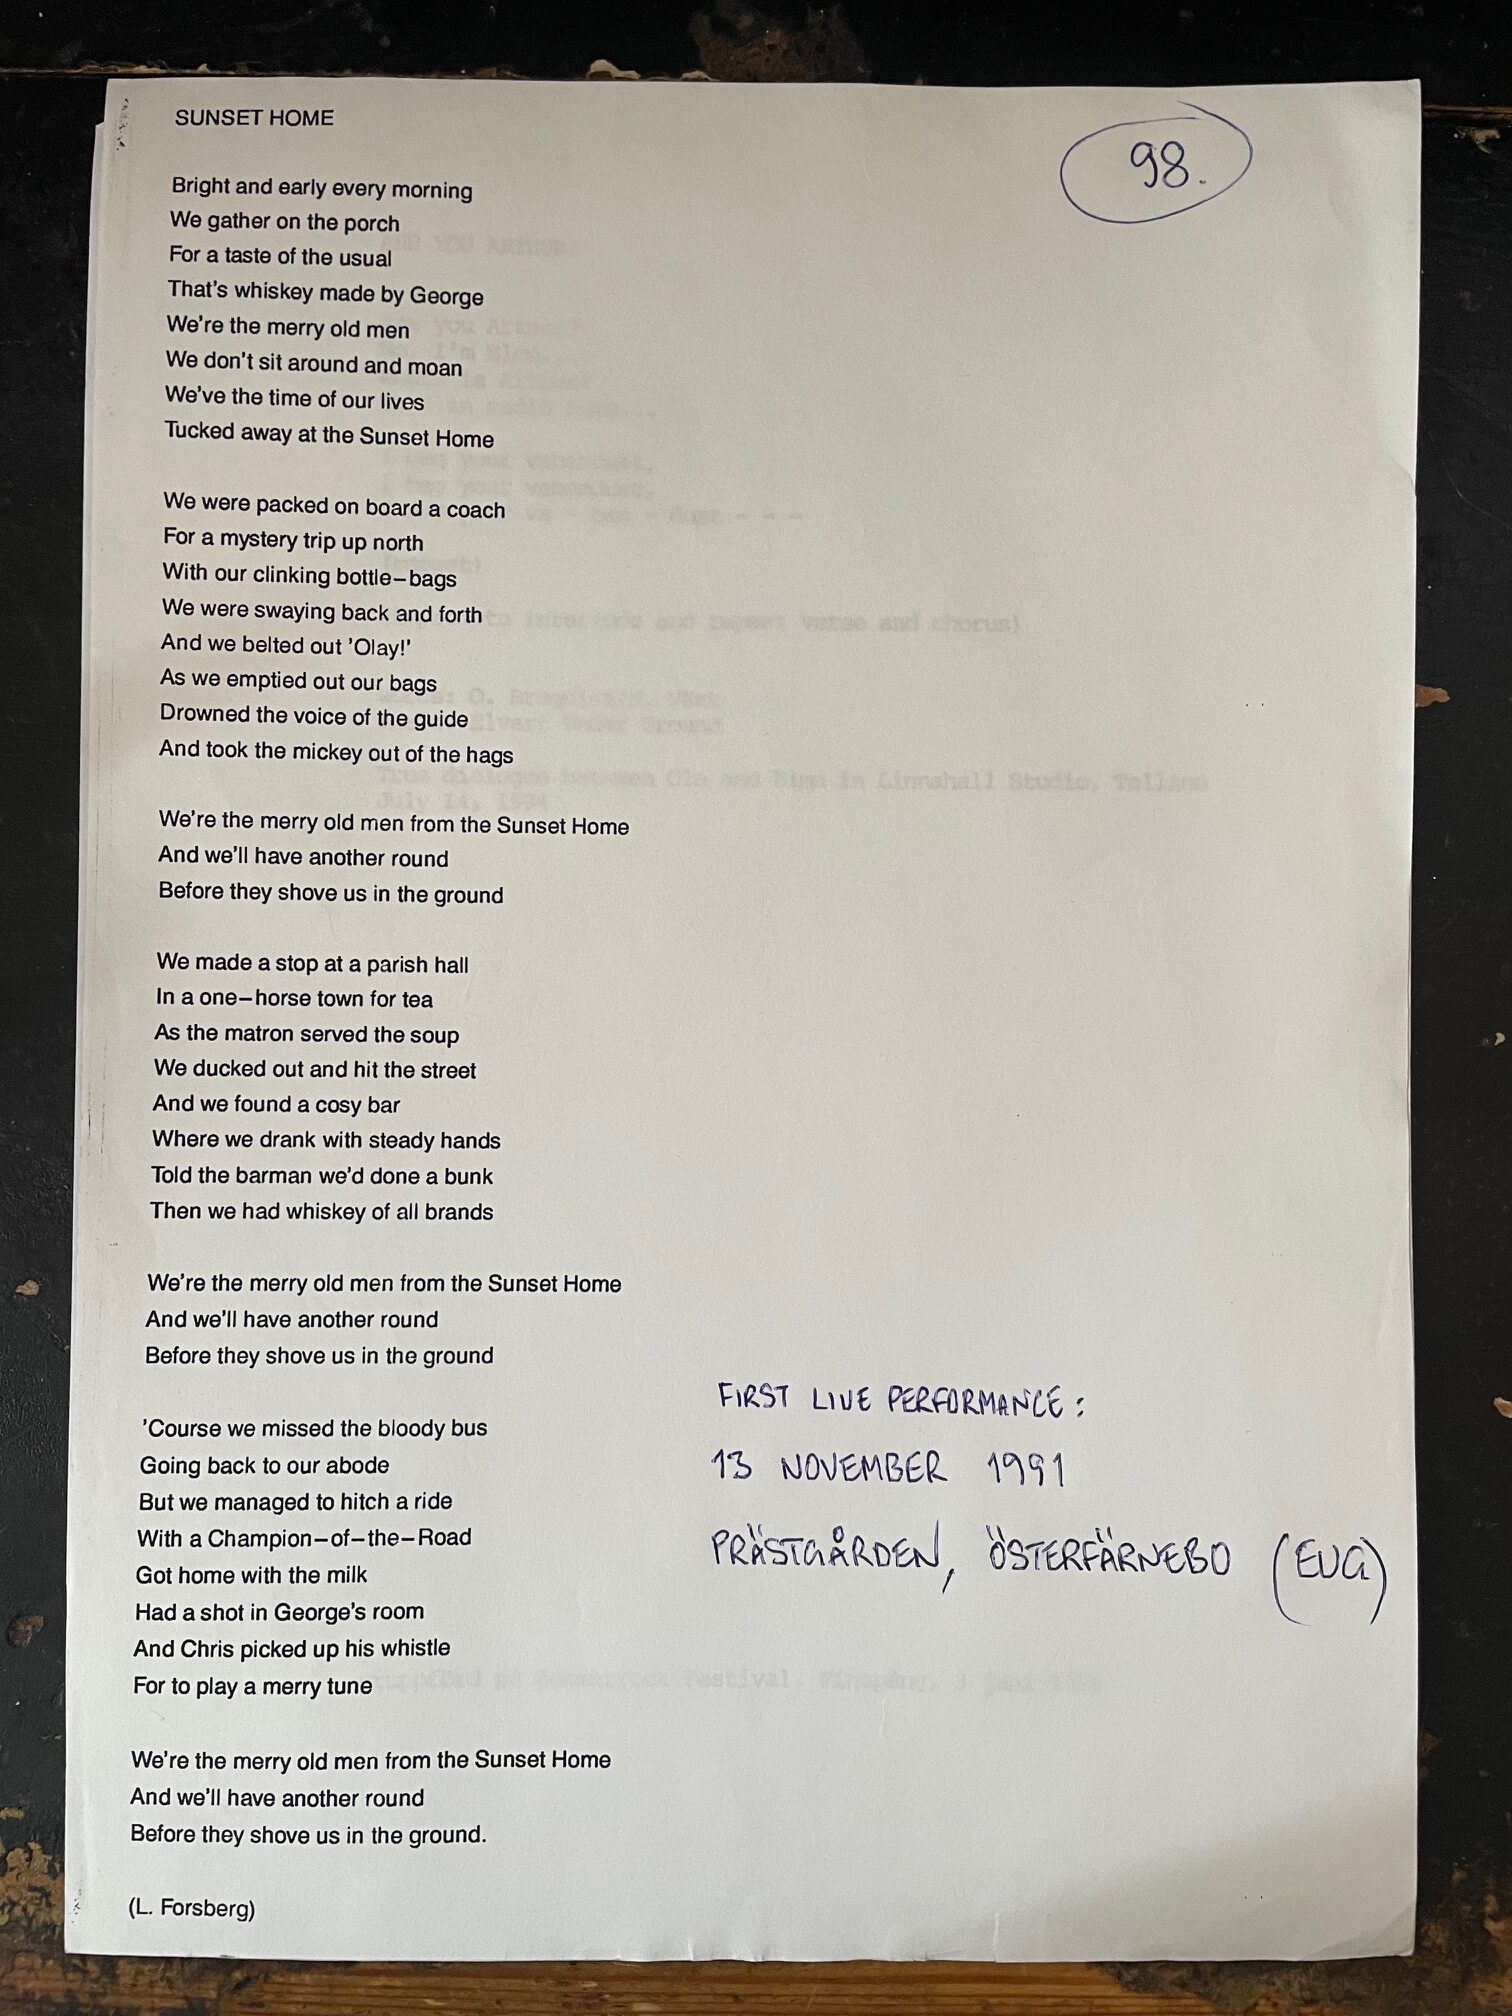 SUNSET HOME
98.
Bright and early every morning
We gather on the porch
For a taste of the usual
That's whiskey made by George
We're the merry old men
We don't sit around and moan
We've the time of our lives
Tucked away at the Sunset Home
We were packed on board a coach
For a mystery trip up north
With our clinking bottle–bags
We were swaying back and forth
And we belted out 'Olay!'
As we emptied out our bags
Drowned the voice of the guide
And took the mickey out of the hags
We're the merry old men from the Sunset Home
And we'll have another round
Before they shove us in the ground
We made a stop at a parish hall
In a one–horse town for tea
As the matron served the soup
We ducked out and hit the street
And we found a cosy bar
Where we drank with steady hands
Told the barman we'd done a bunk
Then we had whiskey of all brands
We're the merry old men from the Sunset Home
And we'll have another round
Before they shove us in the ground
'Course we missed the bloody bus
Going back to our abode
But we managed to hitch a ride
With a Champion–of–the–Road
Got home with the milk
Had a shot in George's room
And Chris picked up his whistle
For to play a merry tune
We're the merry old men from the Sunset Home
And we'll have another round
Before they shove us in the ground.
(L. Forsberg)
FIRST LIVE PERFORMANCE:
13 NOVEMBER 1991
PRÄSTGÅRDEN, ÖSTERFÄRNEBO (EUG)